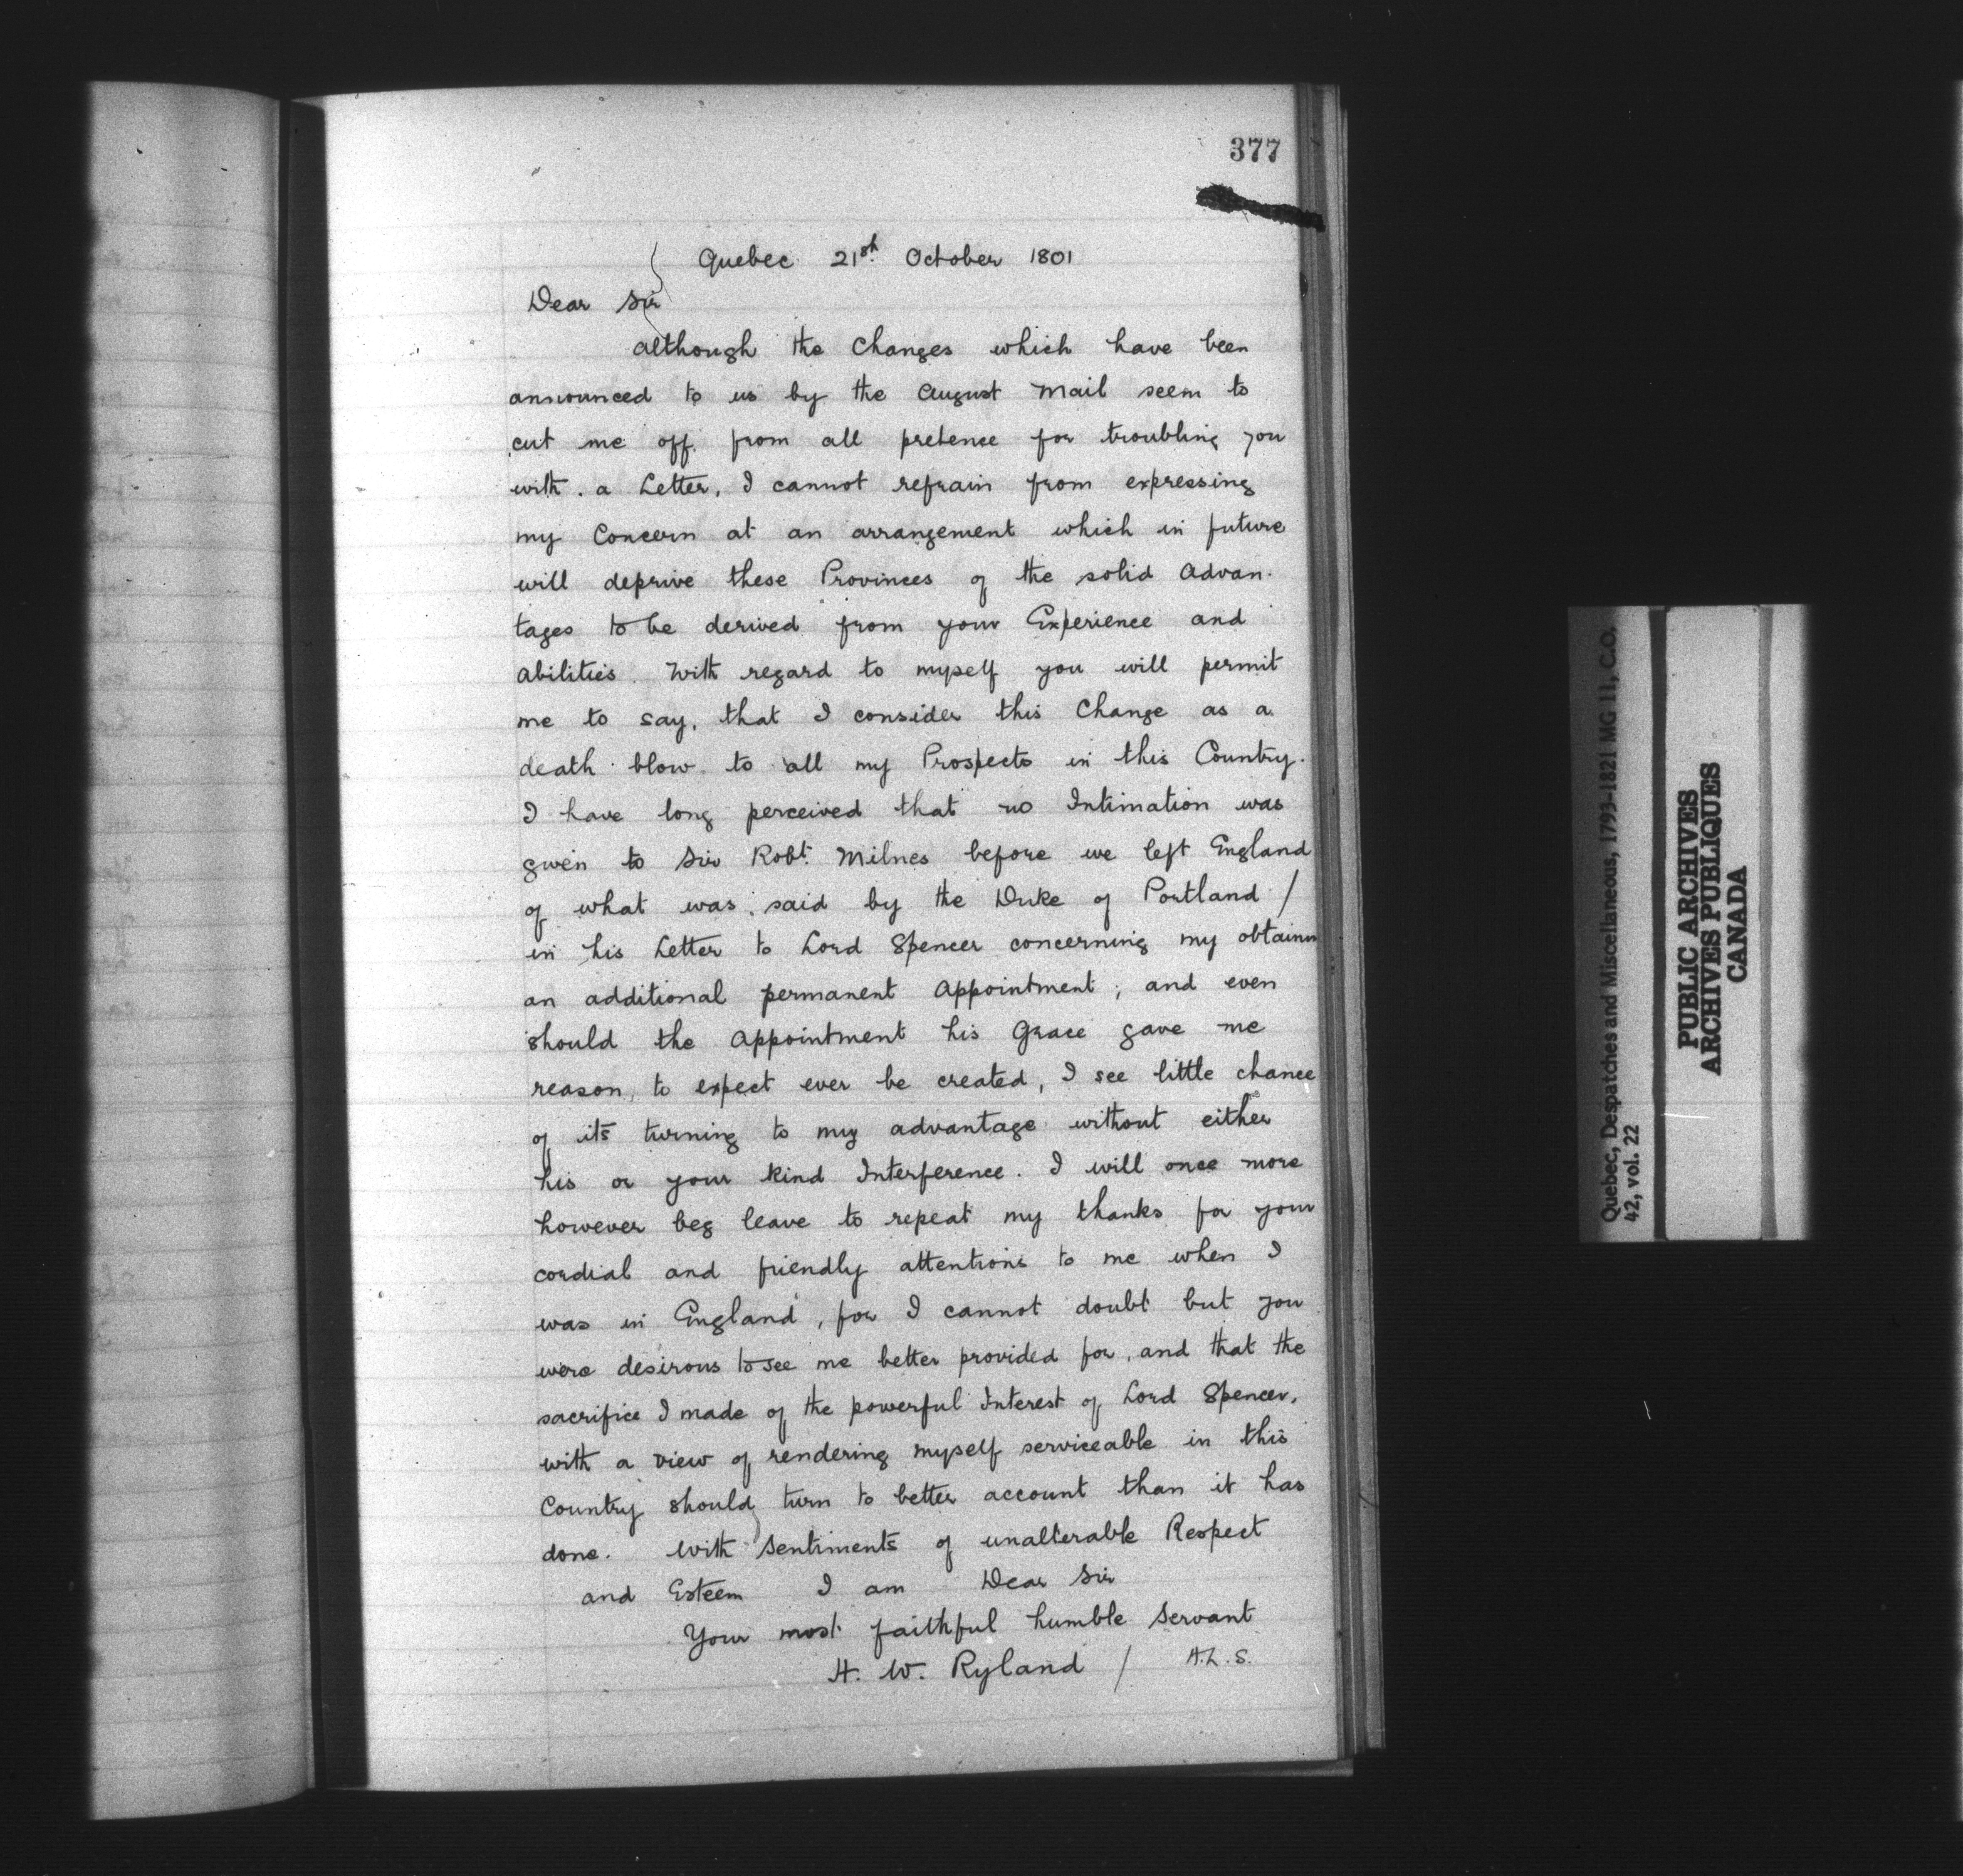 377
Quebec 21st October 1801
Dear Sir
Although the Changes which have been
announced to us by the August Mail seem to
cut me off from all pretence for troubling you
with a Letter, I cannot refrain from expressing
my Concern at an arrangement which in future
will deprive these Provinces of the solid Advan-
tages to be derived from your Experience and
Abilities. With regard to myself you will permit
me to say, that I consider this Change as a
death blow to all my Prospects in this Country.
I have long perceived that no Intimation was
given to Sir Robt. Milnes before we left England
of what was said by the Duke of Portland /
in his Letter to Lord Spencer concerning my obtaining
an additional permanent Appointment; and even
should the Appointment his Grace gave me
reason to expect ever be created, I see little chance
of its turning to my advantage without either
his or your kind Interference. I will once more
however beg leave to repeat my thanks for your
cordial and friendly attentions to me when I
was in England, for I cannot doubt but you
were desirous to see me better provided for, and that the
sacrifice I made of the powerful Interest of Lord Spencer,
with a view of rendering myself serviceable in this
Country should turn to better account than it has
done. With Sentiments of unalterable Respect
and Esteem I am Dear Sir
Your most faithful humble Servant
H. W. Ryland / A.L.S.
Quebec, Despatches and Miscellaneous, 1793-1821 MG 11, C.O.
42, vol. 22
PUBLIC ARCHIVES
ARCHIVES PUBLIQUES
CANADA